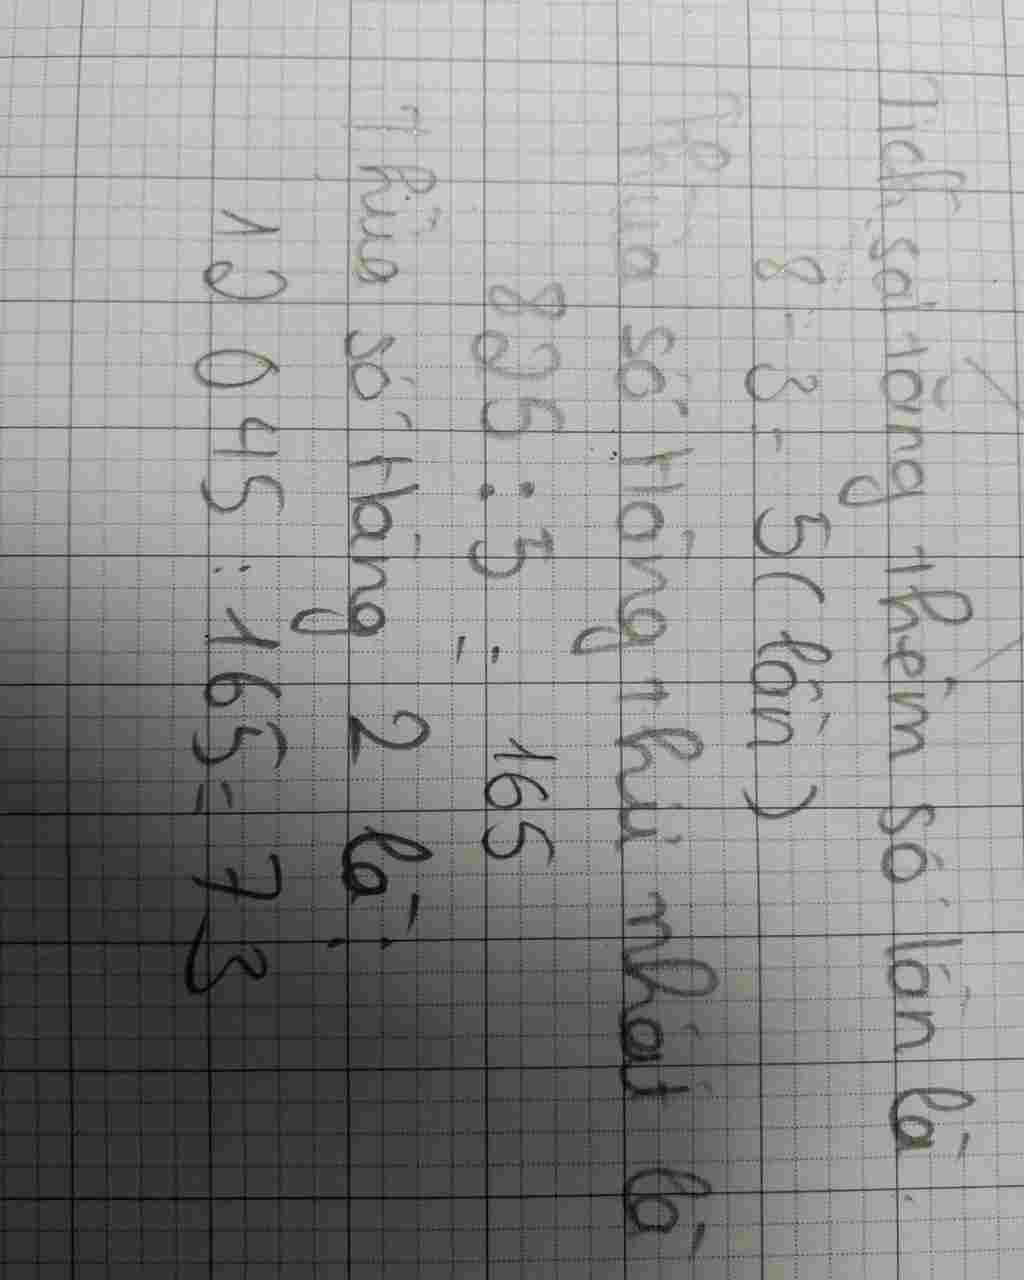 Tích số tăng thêm số lần là:
8 - 3 = 5 (lần)
Thừa số hàng thứ nhất là
825 : 5 = 165
Thừa số hàng 2 là:
12 045 : 165 = 73